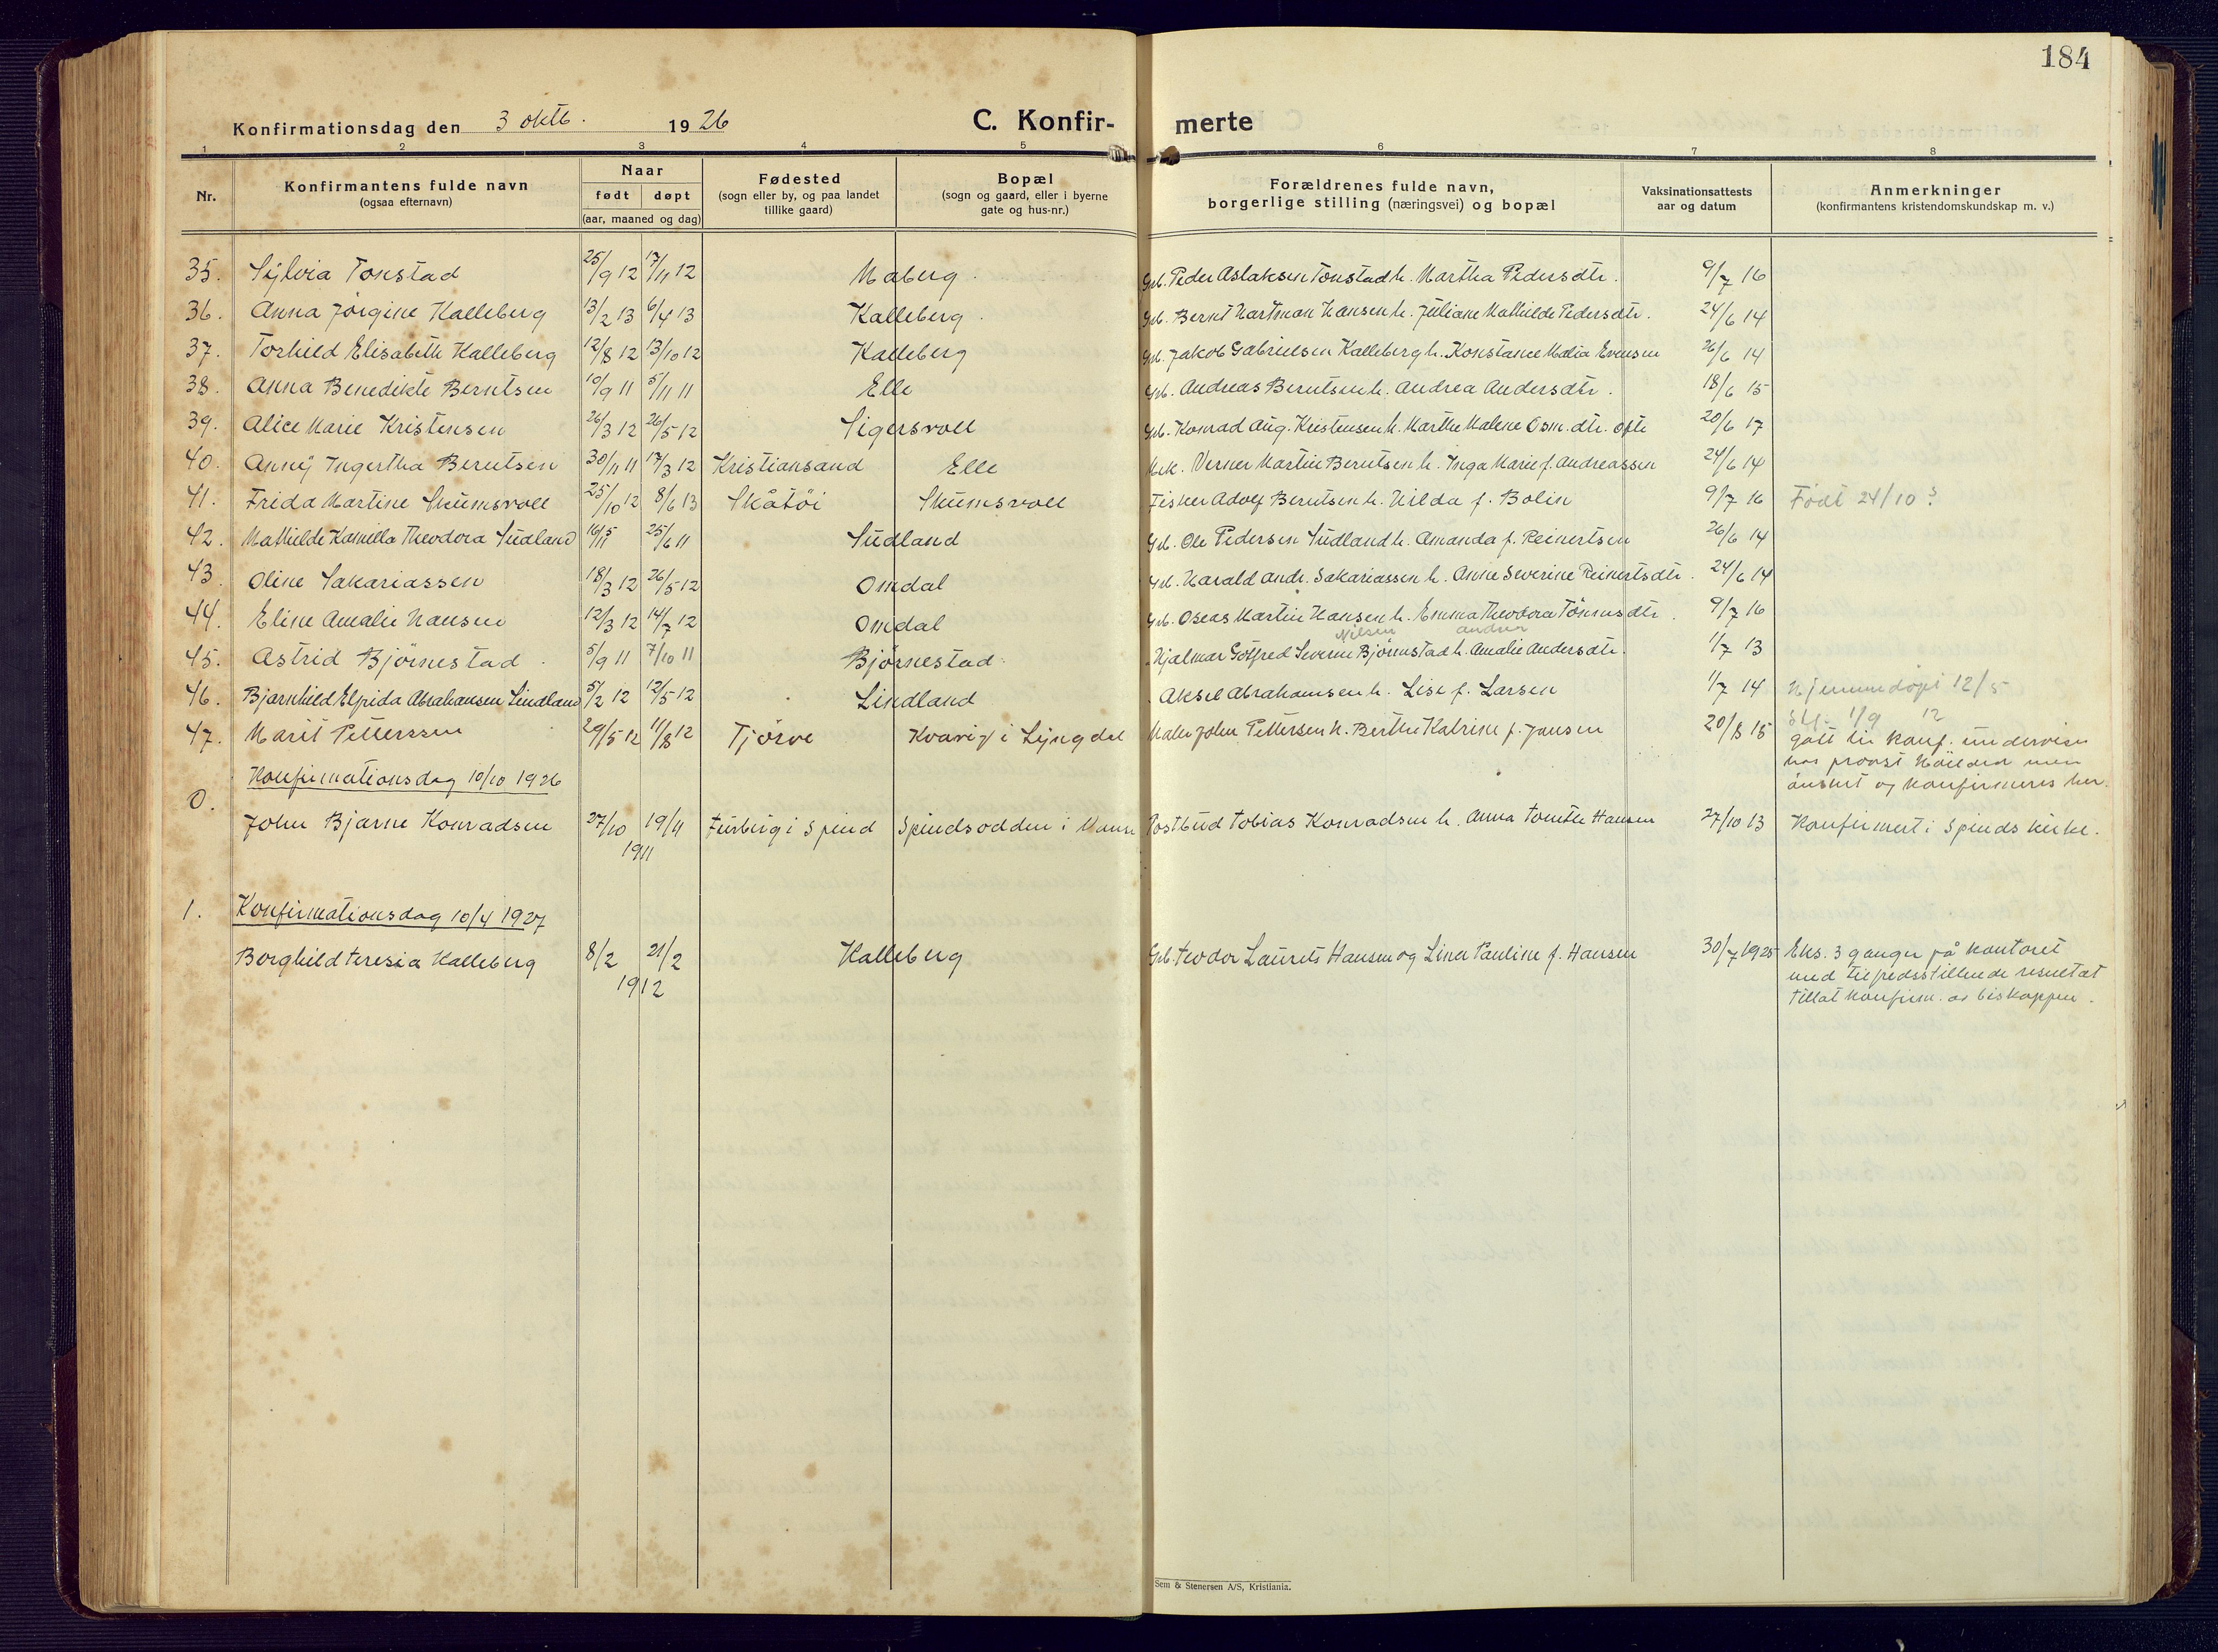 184
Konfirmationsdag den 3 oktb. 1926 C. Konfir- merte
1 2 3 4 5 6 7 8
Nr. Konfirmantens fulde navn (ogsaa efternavn) Naar født døpt (aar, maaned og dag) Fødested (sogn eller by, og paa landet tillike gaard) Bopæl (sogn og gaard, eller i byerne gate og hus-nr.) Forældrenes fulde navn, borgerlige stilling (næringsvei) og bopæl Vaksinationsattests aar og datum Anmerkninger (konfirmantens kristendomskundskap m. v.)
35. Sylvia Tonstad 25/9 12 17/11 12 Maberg. Grb. Peder Aslaksen Tonstad h. Martha Pedersdtr. 9/7 16
36. Anna Jørgine Kalleberg 13/2 13 6/4 13 Kalleberg. Grb. Bernt Hartman Hansen h. Juliane Mathilde Pedersdtr. 24/6 14
37. Torhild Elisabeth Kalleberg 12/8 12 13/10 12 Kalleberg Grb. Jakob Gabrielsen Kalleberg h. Konstance Malia Evensen 26/6 14
38. Anna Benedikte Berntsen 10/9 11 5/11 11 Elle Grb. Andreas Berntsen h. Andrea Andersdtr. 18/6 15
39. Alice Marie Kristensen 26/3 12 26/5 12 Sigersvoll Grb. Konrad Aug. Kristensen h. Marthe Malene Osm. dtr. Ofte 20/6 17
40. Anny Ingertha Berntsen 30/11 11 17/3 12 Kristiansand Elle Mek. Verner Martin Berntsen h. Inga Marie f. Andreassen 24/6 14
41. Frida Martine Skumsvoll 25/10 12 8/6 13 Skåtöi Skumsvoll Fisker Adolf Berntsen h. Hilda f. Bolin 9/7 16 Født 24/10?
42. Mathilde Kamilla Theodora Sudland 16/5 11 25/6 11 Sudland Grb. Ole Pedersen Sudland h. Amanda f. Reinertsen 26/6 14
43. Oline Sakariassen 18/3 12 26/5 12 Omdal Grb. Harald Andr. Sakariassen h. Anne Severine Reinertsdtr. 24/6 14
44. Eline Amalie Hansen 12/3 12 14/7 12 Omdal Grb. Oseas Martin Hansen h. Emma Theodora Tönnesdtr. 9/7 16
Nilsen
45. Astrid Björnestad 5/9 11 7/10 11 Björnestad. Hjalmar Gotfred Severin Björnestad h. Amalie Andersdtr. 1/7 13
46. Bjarnhild Elfrida Abrahamsen Lindland 5/2 12 12/5 12 Lindland Aksel Abrahamsen h. Lise f. Larsen 1/7 14 Hjemmedöpt 12/5
1/9 12
47. Marit Pettersen 29/5 12 11/8 12 Tjörve Kvavig i Lyngdal Maler John Pettersen h. Berthe Katrine f. Jansen 20/8 15 gått til konf. undervisn
hos provst men
önsket og konfirmeres her.
Konfirmationsdag 10/10 1926
0. John Bjarne Konradsen 27/10 19/11 1911 Furberg i Spind Spindsodden i Postbud Tobias Konradsen h. Anna Tomth Hansen 27/10 13 Konfirmert i Spinds kirke.
1. Konfirmationsdag 10/4 1927
Borghild Teresia Kalleberg 8/2 21/2 1912 Kalleberg Grb. Teodor Laurits Hansen og Lina Pauline f. Hansen 30/7 1925 Eks. 3 ganger på kontoret
med tilfredsstillende resultat
Tillat konfirm. av biskoppen.
Sem & Stenersen A/S, Kristiania.